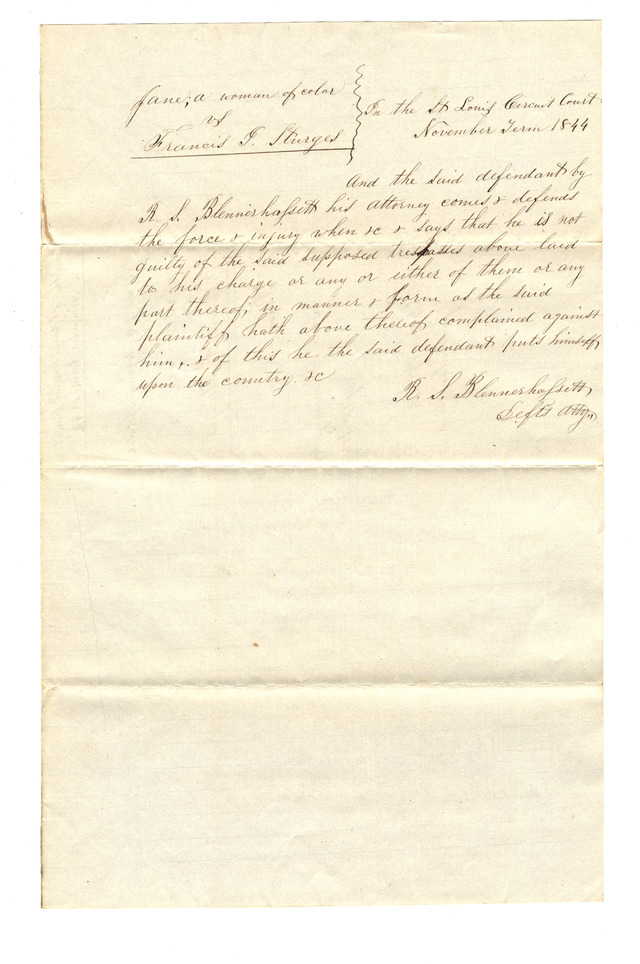 Jane, a woman of color
vs
Francis T. Sturges
In the St Louis Circuit Court
November Term 1844
And the said defendant by
R. S. Blennerhassett his attorney comes & defends
the force & injury when &c & says that he is not
guilty of the said supposed trespasses above laid
to his charge or any or either of them or any
part thereof, in manner & form as the said
plaintiff hath above thereof complained against
him, & of this he the said defendant puts himself
upon the country &c
R. S. Blennerhassett,
Defts Atty